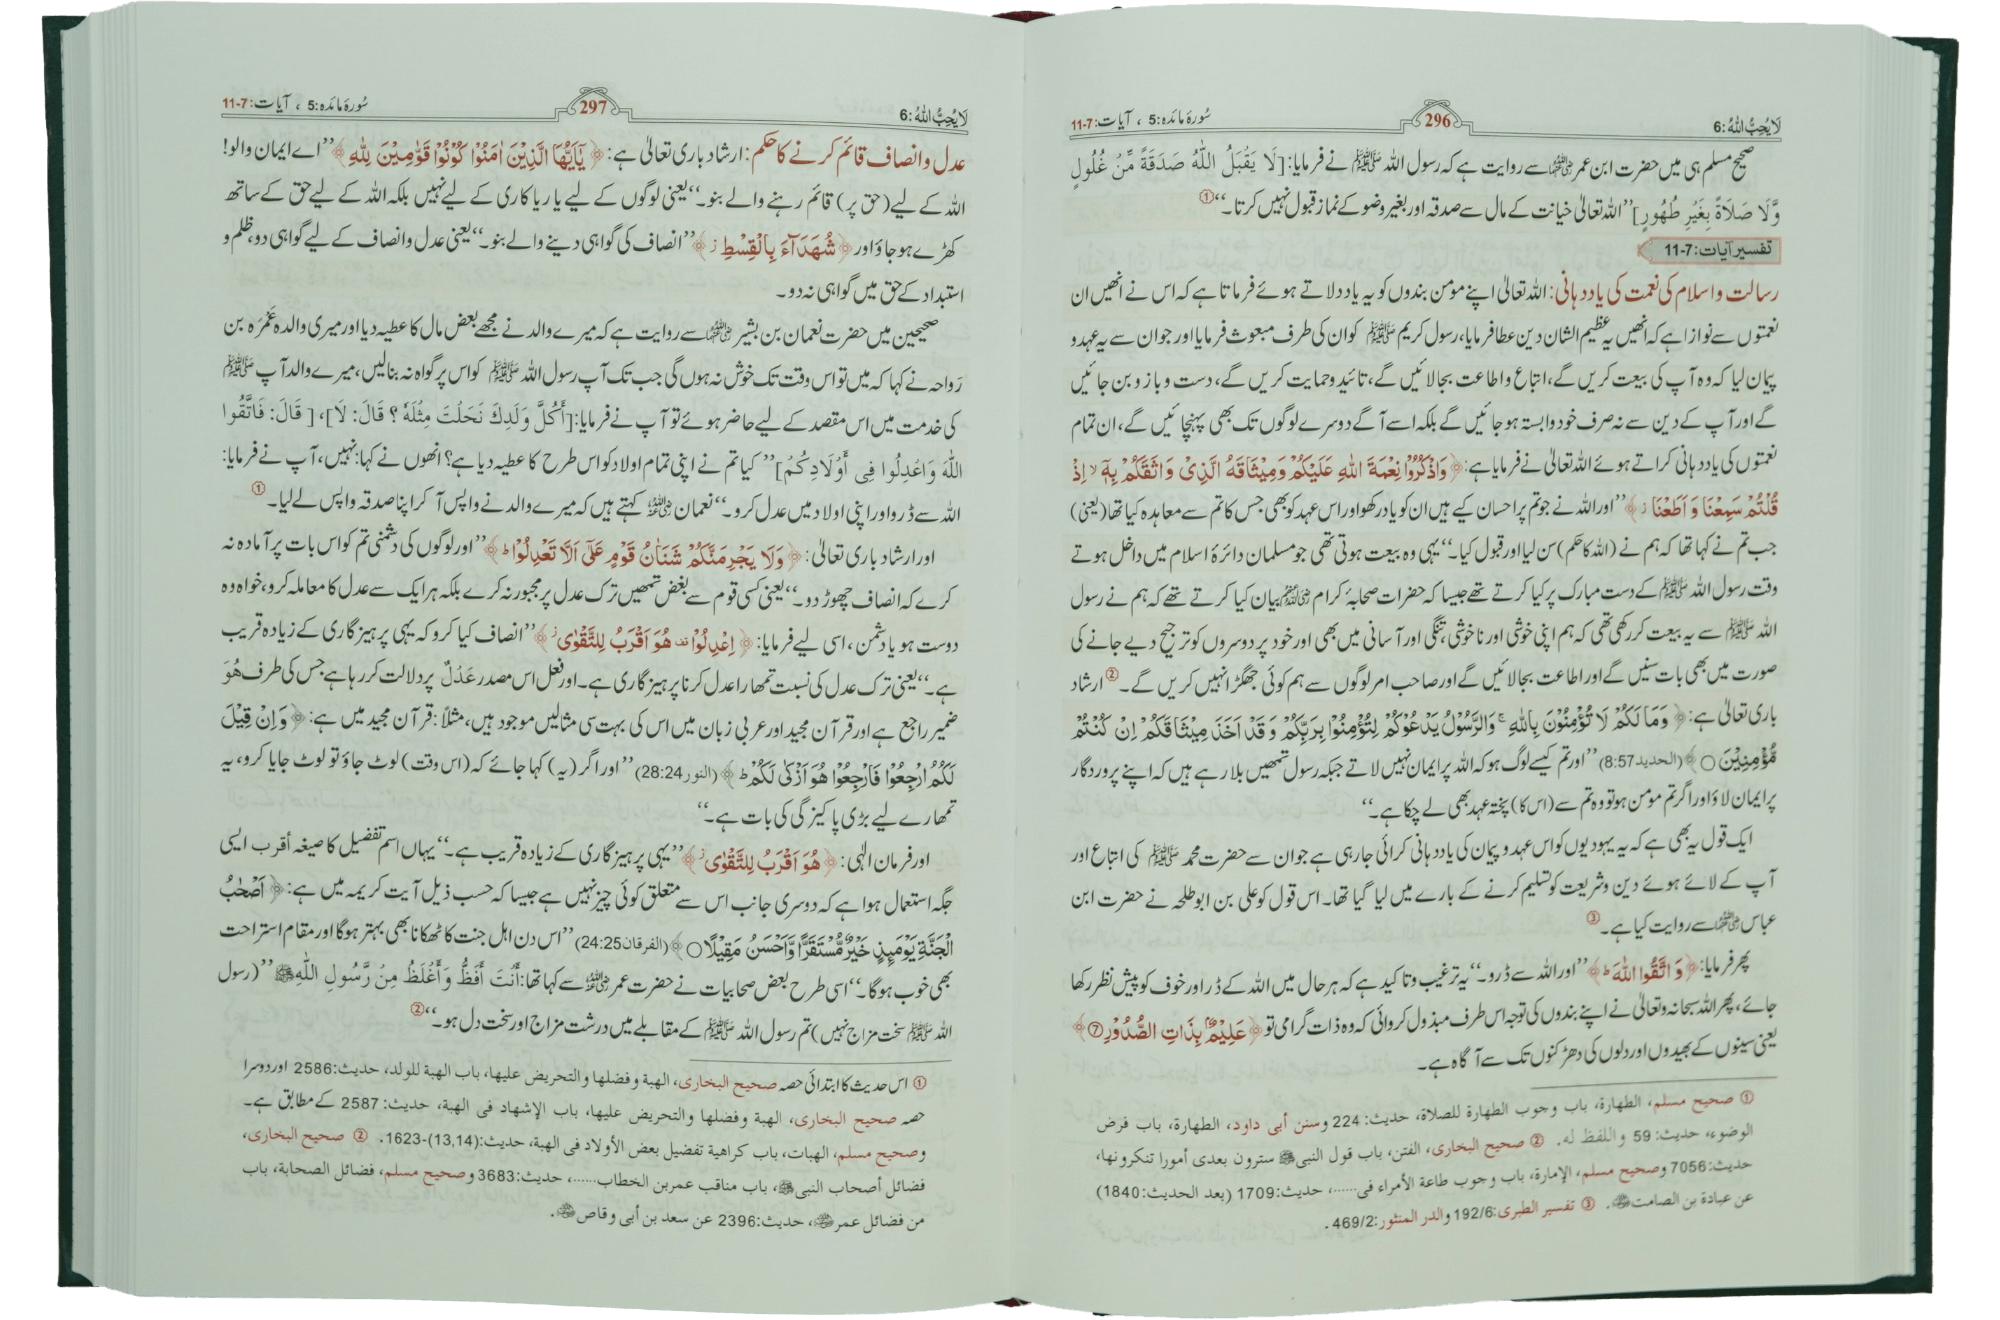 لَا يُحِبُّ اللهُ: 6
296
سُورۂ مائدہ: 5 ، آیات: 7-11
صحیح مسلم ہی میں حضرت ابن عمر ؓ سے روایت ہے کہ رسول اللہ ﷺ نے فرمایا: [لَا يَقْبَلُ اللّٰهُ صَدَقَةً مِّنْ غُلُولٍ
وَّلَا صَلَاةً بِغَيْرِ طُهُورٍ] ’’اللہ تعالیٰ خیانت کے مال سے صدقہ اور بغیر وضو کے نماز قبول نہیں کرتا۔‘‘①
تفسیر آیات: 7-11
رسالت و اسلام کی نعمت کی یاددہانی: اللہ تعالیٰ اپنے مومن بندوں کو یہ یاد دلاتے ہوئے فرماتا ہے کہ اس نے انھیں ان
نعمتوں سے نوازا ہے کہ انھیں یہ عظیم الشان دین عطا فرمایا، رسول کریم ﷺ کو ان کی طرف مبعوث فرمایا اور جو ان سے یہ عہد و
پیمان لیا کہ وہ آپ کی بیعت کریں گے، اتباع و اطاعت بجا لائیں گے، تائید و حمایت کریں گے، دست و بازو بن جائیں
گے اور آپ کے دین سے نہ صرف خود وابستہ ہو جائیں گے بلکہ اسے آگے دوسرے لوگوں تک بھی پہنچائیں گے، ان تمام
نعمتوں کی یاددہانی کراتے ہوئے اللہ تعالیٰ نے فرمایا ہے: ﴿وَاذْكُرُوْا نِعْمَةَ اللّٰهِ عَلَيْكُمْ وَمِيْثَاقَهُ الَّذِيْ وَاثَقَكُمْ بِهٖٓ ۙ اِذْ
قُلْتُمْ سَمِعْنَا وَاَطَعْنَا ۡ﴾ ’’اور اللہ نے جو تم پر احسان کیے ہیں ان کو یاد رکھو اور اس عہد کو بھی جس کا تم سے معاہدہ کیا تھا (یعنی)
جب تم نے کہا تھا کہ ہم نے (اللہ کا حکم) سن لیا اور قبول کیا۔‘‘ یہی وہ بیعت ہوتی تھی جو مسلمان دائرۂ اسلام میں داخل ہوتے
وقت رسول اللہ ﷺ کے دست مبارک پر کیا کرتے تھے جیسا کہ حضرات صحابۂ کرام ؓ بیان کیا کرتے تھے کہ ہم نے رسول
اللہ ﷺ سے یہ بیعت کر رکھی تھی کہ ہم اپنی خوشی اور ناخوشی، تنگی اور آسانی میں بھی اور خود پر دوسروں کو ترجیح دیے جانے کی
صورت میں بھی بات سنیں گے اور اطاعت بجا لائیں گے اور صاحب امر لوگوں سے ہم کوئی جھگڑا نہیں کریں گے۔② ارشاد
باری تعالیٰ ہے: ﴿وَمَا لَكُمْ لَا تُؤْمِنُوْنَ بِاللّٰهِ ۚ وَالرَّسُوْلُ يَدْعُوْكُمْ لِتُؤْمِنُوْا بِرَبِّكُمْ وَقَدْ اَخَذَ مِيْثَاقَكُمْ اِنْ كُنْتُمْ
مُّؤْمِنِيْنَ ○﴾ (الحدید 8:57) ’’اور تم کیسے لوگ ہو کہ اللہ پر ایمان نہیں لاتے جبکہ رسول تمھیں بلا رہے ہیں کہ اپنے پروردگار
پر ایمان لاؤ اور اگر تم مومن ہو تو وہ تم سے (اس کا) پختہ عہد بھی لے چکا ہے۔‘‘
ایک قول یہ بھی ہے کہ یہ یہودیوں کو اس عہد و پیمان کی یاددہانی کرائی جا رہی ہے جو ان سے حضرت محمد ﷺ کی اتباع اور
آپ کے لائے ہوئے دین و شریعت کو تسلیم کرنے کے بارے میں لیا گیا تھا۔ اس قول کو علی بن ابوطلحہ نے حضرت ابن
عباس ؓ سے روایت کیا ہے۔③
پھر فرمایا: ﴿وَاتَّقُوا اللّٰهَ ؕ﴾ ’’اور اللہ سے ڈرو۔‘‘ یہ ترغیب و تاکید ہے کہ ہر حال میں اللہ کے ڈر اور خوف کو پیش نظر رکھا
جائے، پھر اللہ سبحانہ وتعالیٰ نے اپنے بندوں کی توجہ اس طرف مبذول کروائی کہ وہ ذات گرامی تو ﴿عَلِيْمٌۢ بِذَاتِ الصُّدُوْرِ ⑦﴾
یعنی سینوں کے بھیدوں اور دلوں کی دھڑکنوں تک سے آگاہ ہے۔
① صحيح مسلم، الطهارة، باب وجوب الطهارة للصلاة، حديث: 224 وسنن أبي داود، الطهارة، باب فرض
الوضوء، حديث: 59 واللفظ له. ② صحيح البخاري، الفتن، باب قول النبي ﷺ سترون بعدي أمورا تنكرونها،
حديث: 7056 وصحيح مسلم، الإمارة، باب وجوب طاعة الأمراء في......، حديث: 1709 (بعد الحديث: 1840)
عن عبادة بن الصامت ؓ. ③ تفسير الطبري: 192/6 والدر المنثور: 469/2.
لَا يُحِبُّ اللهُ: 6
297
سُورۂ مائدہ: 5 ، آیات: 7-11
عدل و انصاف قائم کرنے کا حکم: ارشاد باری تعالیٰ ہے: ﴿يٰٓاَيُّهَا الَّذِيْنَ اٰمَنُوْا كُوْنُوْا قَوّٰمِيْنَ لِلّٰهِ﴾ ’’اے ایمان والو!
اللہ کے لیے (حق پر) قائم رہنے والے بنو۔‘‘ یعنی لوگوں کے لیے یا ریاکاری کے لیے نہیں بلکہ اللہ کے لیے حق کے ساتھ
کھڑے ہو جاؤ اور ﴿شُهَدَآءَ بِالْقِسْطِ ۡ﴾ ’’انصاف کی گواہی دینے والے بنو۔‘‘ یعنی عدل و انصاف کے لیے گواہی دو، ظلم و
استبداد کے حق میں گواہی نہ دو۔
صحیحین میں حضرت نعمان بن بشیر ؓ سے روایت ہے کہ میرے والد نے مجھے بعض مال کا عطیہ دیا اور میری والدہ عَمْرَہ بن
رواحہ نے کہا کہ میں تو اس وقت تک خوش نہ ہوں گی جب تک آپ رسول اللہ ﷺ کو اس پر گواہ نہ بنا لیں، میرے والد آپ ﷺ
کی خدمت میں اس مقصد کے لیے حاضر ہوئے تو آپ نے فرمایا: [أَكُلَّ وَلَدِكَ نَحَلْتَ مِثْلَهُ؟ قَالَ: لَا]، [قَالَ: فَاتَّقُوا
اللّٰهَ وَاعْدِلُوا فِي أَوْلَادِكُمْ] ’’کیا تم نے اپنی تمام اولاد کو اس طرح کا عطیہ دیا ہے؟ انھوں نے کہا: نہیں، آپ نے فرمایا:
اللہ سے ڈرو اور اپنی اولاد میں عدل کرو۔‘‘ نعمان ؓ کہتے ہیں کہ میرے والد نے واپس آ کر اپنا صدقہ واپس لے لیا۔①
اور ارشاد باری تعالیٰ: ﴿وَلَا يَجْرِمَنَّكُمْ شَنَاٰنُ قَوْمٍ عَلٰٓى اَلَّا تَعْدِلُوْا ؕ﴾ ’’اور لوگوں کی دشمنی تم کو اس بات پر آمادہ نہ
کرے کہ انصاف چھوڑ دو۔‘‘ یعنی کسی قوم سے بغض تمھیں ترک عدل پر مجبور نہ کرے بلکہ ہر ایک سے عدل کا معاملہ کرو، خواہ وہ
دوست ہو یا دشمن، اسی لیے فرمایا: ﴿اِعْدِلُوْا ۟ هُوَ اَقْرَبُ لِلتَّقْوٰى ۡ﴾ ’’انصاف کیا کرو کہ یہی پرہیزگاری کے زیادہ قریب
ہے۔‘‘ یعنی ترک عدل کی نسبت تمھارا عدل کرنا پرہیزگاری ہے۔ اور فعل اس مصدر عَدْلٌ پر دلالت کر رہا ہے جس کی طرف هُوَ
ضمیر راجع ہے اور قرآن مجید اور عربی زبان میں اس کی بہت سی مثالیں موجود ہیں، مثلاً: قرآن مجید میں ہے: ﴿وَاِنْ قِيْلَ
لَكُمُ ارْجِعُوْا فَارْجِعُوْا هُوَ اَزْكٰى لَكُمْ ؕ﴾ (النور 28:24) ’’اور اگر (یہ) کہا جائے کہ (اس وقت) لوٹ جاؤ تو لوٹ جایا کرو، یہ
تمھارے لیے بڑی پاکیزگی کی بات ہے۔‘‘
اور فرمان الٰہی: ﴿هُوَ اَقْرَبُ لِلتَّقْوٰى ۡ﴾ ’’یہی پرہیزگاری کے زیادہ قریب ہے۔‘‘ یہاں اسم تفضیل کا صیغہ أقرب ایسی
جگہ استعمال ہوا ہے کہ دوسری جانب اس سے متعلق کوئی چیز نہیں ہے جیسا کہ حسب ذیل آیت کریمہ میں ہے: ﴿اَصْحٰبُ
الْجَنَّةِ يَوْمَئِذٍ خَيْرٌ مُّسْتَقَرًّا وَّاَحْسَنُ مَقِيْلًا ○﴾ (الفرقان 24:25) ’’اس دن اہل جنت کا ٹھکانا بھی بہتر ہوگا اور مقام استراحت
بھی خوب ہوگا۔‘‘ اسی طرح بعض صحابیات نے حضرت عمر ؓ سے کہا تھا: أَنْتَ أَفَظُّ وَأَغْلَظُ مِنْ رَّسُولِ اللّٰهِ ﷺ ’’(رسول
اللہ ﷺ سخت مزاج نہیں) تم رسول اللہ ﷺ کے مقابلے میں درشت مزاج اور سخت دل ہو۔‘‘②
① اس حدیث کا ابتدائی حصہ صحيح البخاري، الهبة وفضلها والتحريض عليها، باب الهبة للولد، حديث: 2586 اور دوسرا
حصہ صحيح البخاري، الهبة وفضلها والتحريض عليها، باب الإشهاد في الهبة، حديث: 2587 کے مطابق ہے۔
وصحيح مسلم، الهبات، باب كراهية تفضيل بعض الأولاد في الهبة، حديث: (13,14)-1623. ② صحيح البخاري،
فضائل أصحاب النبي ﷺ، باب مناقب عمر بن الخطاب......، حديث: 3683 وصحيح مسلم، فضائل الصحابة، باب
من فضائل عمر ؓ، حديث: 2396 عن سعد بن أبي وقاص ؓ.